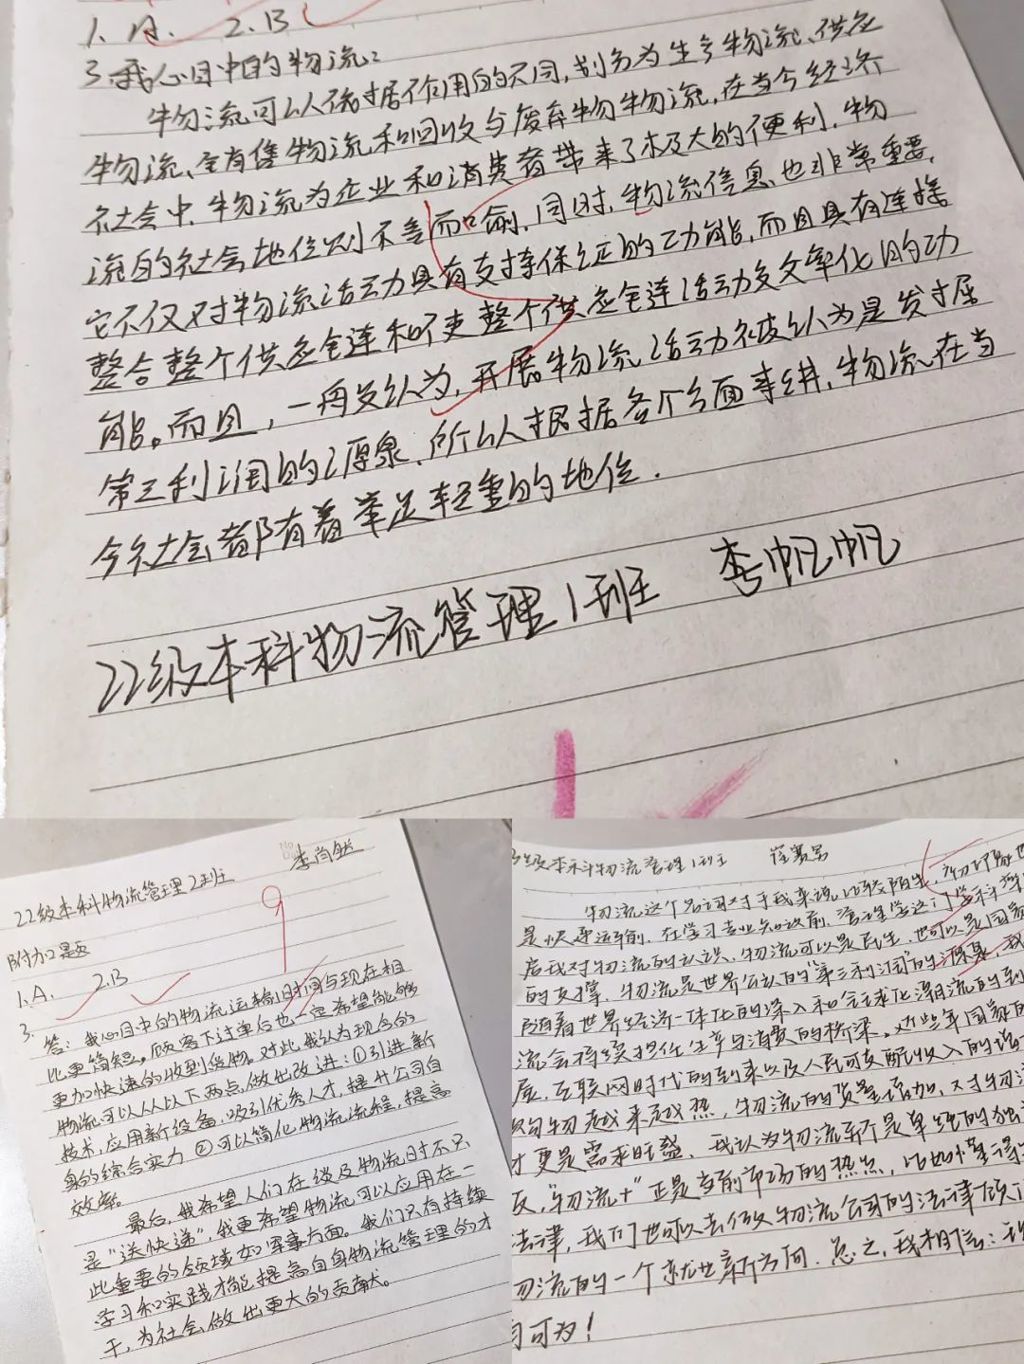 1. A. 2. B
3. 我心目中的物流:
物流可以依据作用的不同,划分为生产物流、供应
物流、销售物流和回收与废弃物物流,在当今经济
社会中,物流为企业和消费者带来了极大的便利,物
流的社会地位则不言而喻,同时,物流信息也非常重要,
它不仅对物流活动具有支持保证的功能,而且具有连接
整合整个供应链和使整个供应链活动效率化的功
能。而且,一再发认为,开展物流活动被认为是发掘
第三利润的源泉,所以根据各个方面来讲,物流在当
今社会都有着举足轻重的地位.
22级本科物流管理1班 李帆帆
22级本科物流管理2班 李尚然
附加题 9
1. A. 2. B
3.
答:我心目中的物流运输时间与现在相
比更简短。顾客下过单后也一定希望能够
更加快速的收到货物。对此我认为现今的
物流可以从以下两点做出改进:①引进新
技术,应用新设备,吸引优秀人才,提升公司自
身的综合实力 ②可以简化物流流程,提高
效率。
最后,我希望人们在谈及物流时不只
是“送快递”,我更希望物流可以应用在一
些重要的领域如军事方面。我们只有持续
学习和实践才能提高自身物流管理的才
干,为社会做出更大的贡献。
级本科物流管理1班
物流这个名词对于我来说比较陌生,
是快递运输,在学习专业知识前,
后我对物流的认识,物流可以是民生,也可以是国家
的支撑,物流是世界公认的“第三利润”的源泉,我
随着世界经济一体化的深入和全球化潮流的到
流会持续担任生产与消费的桥梁,这些年国家的
展,互联网时代的到来以及人民可支配收入的增
购物越来越热,物流的货量增加,对物流
才更是需求旺盛,我认为物流不是单纯的独
反,“物流+”正是当前市场的热点,比如懂得
法律,我们也可以去做物流公司的法律顾问
物流的一个就业新方向,总之,我相信:
可为!